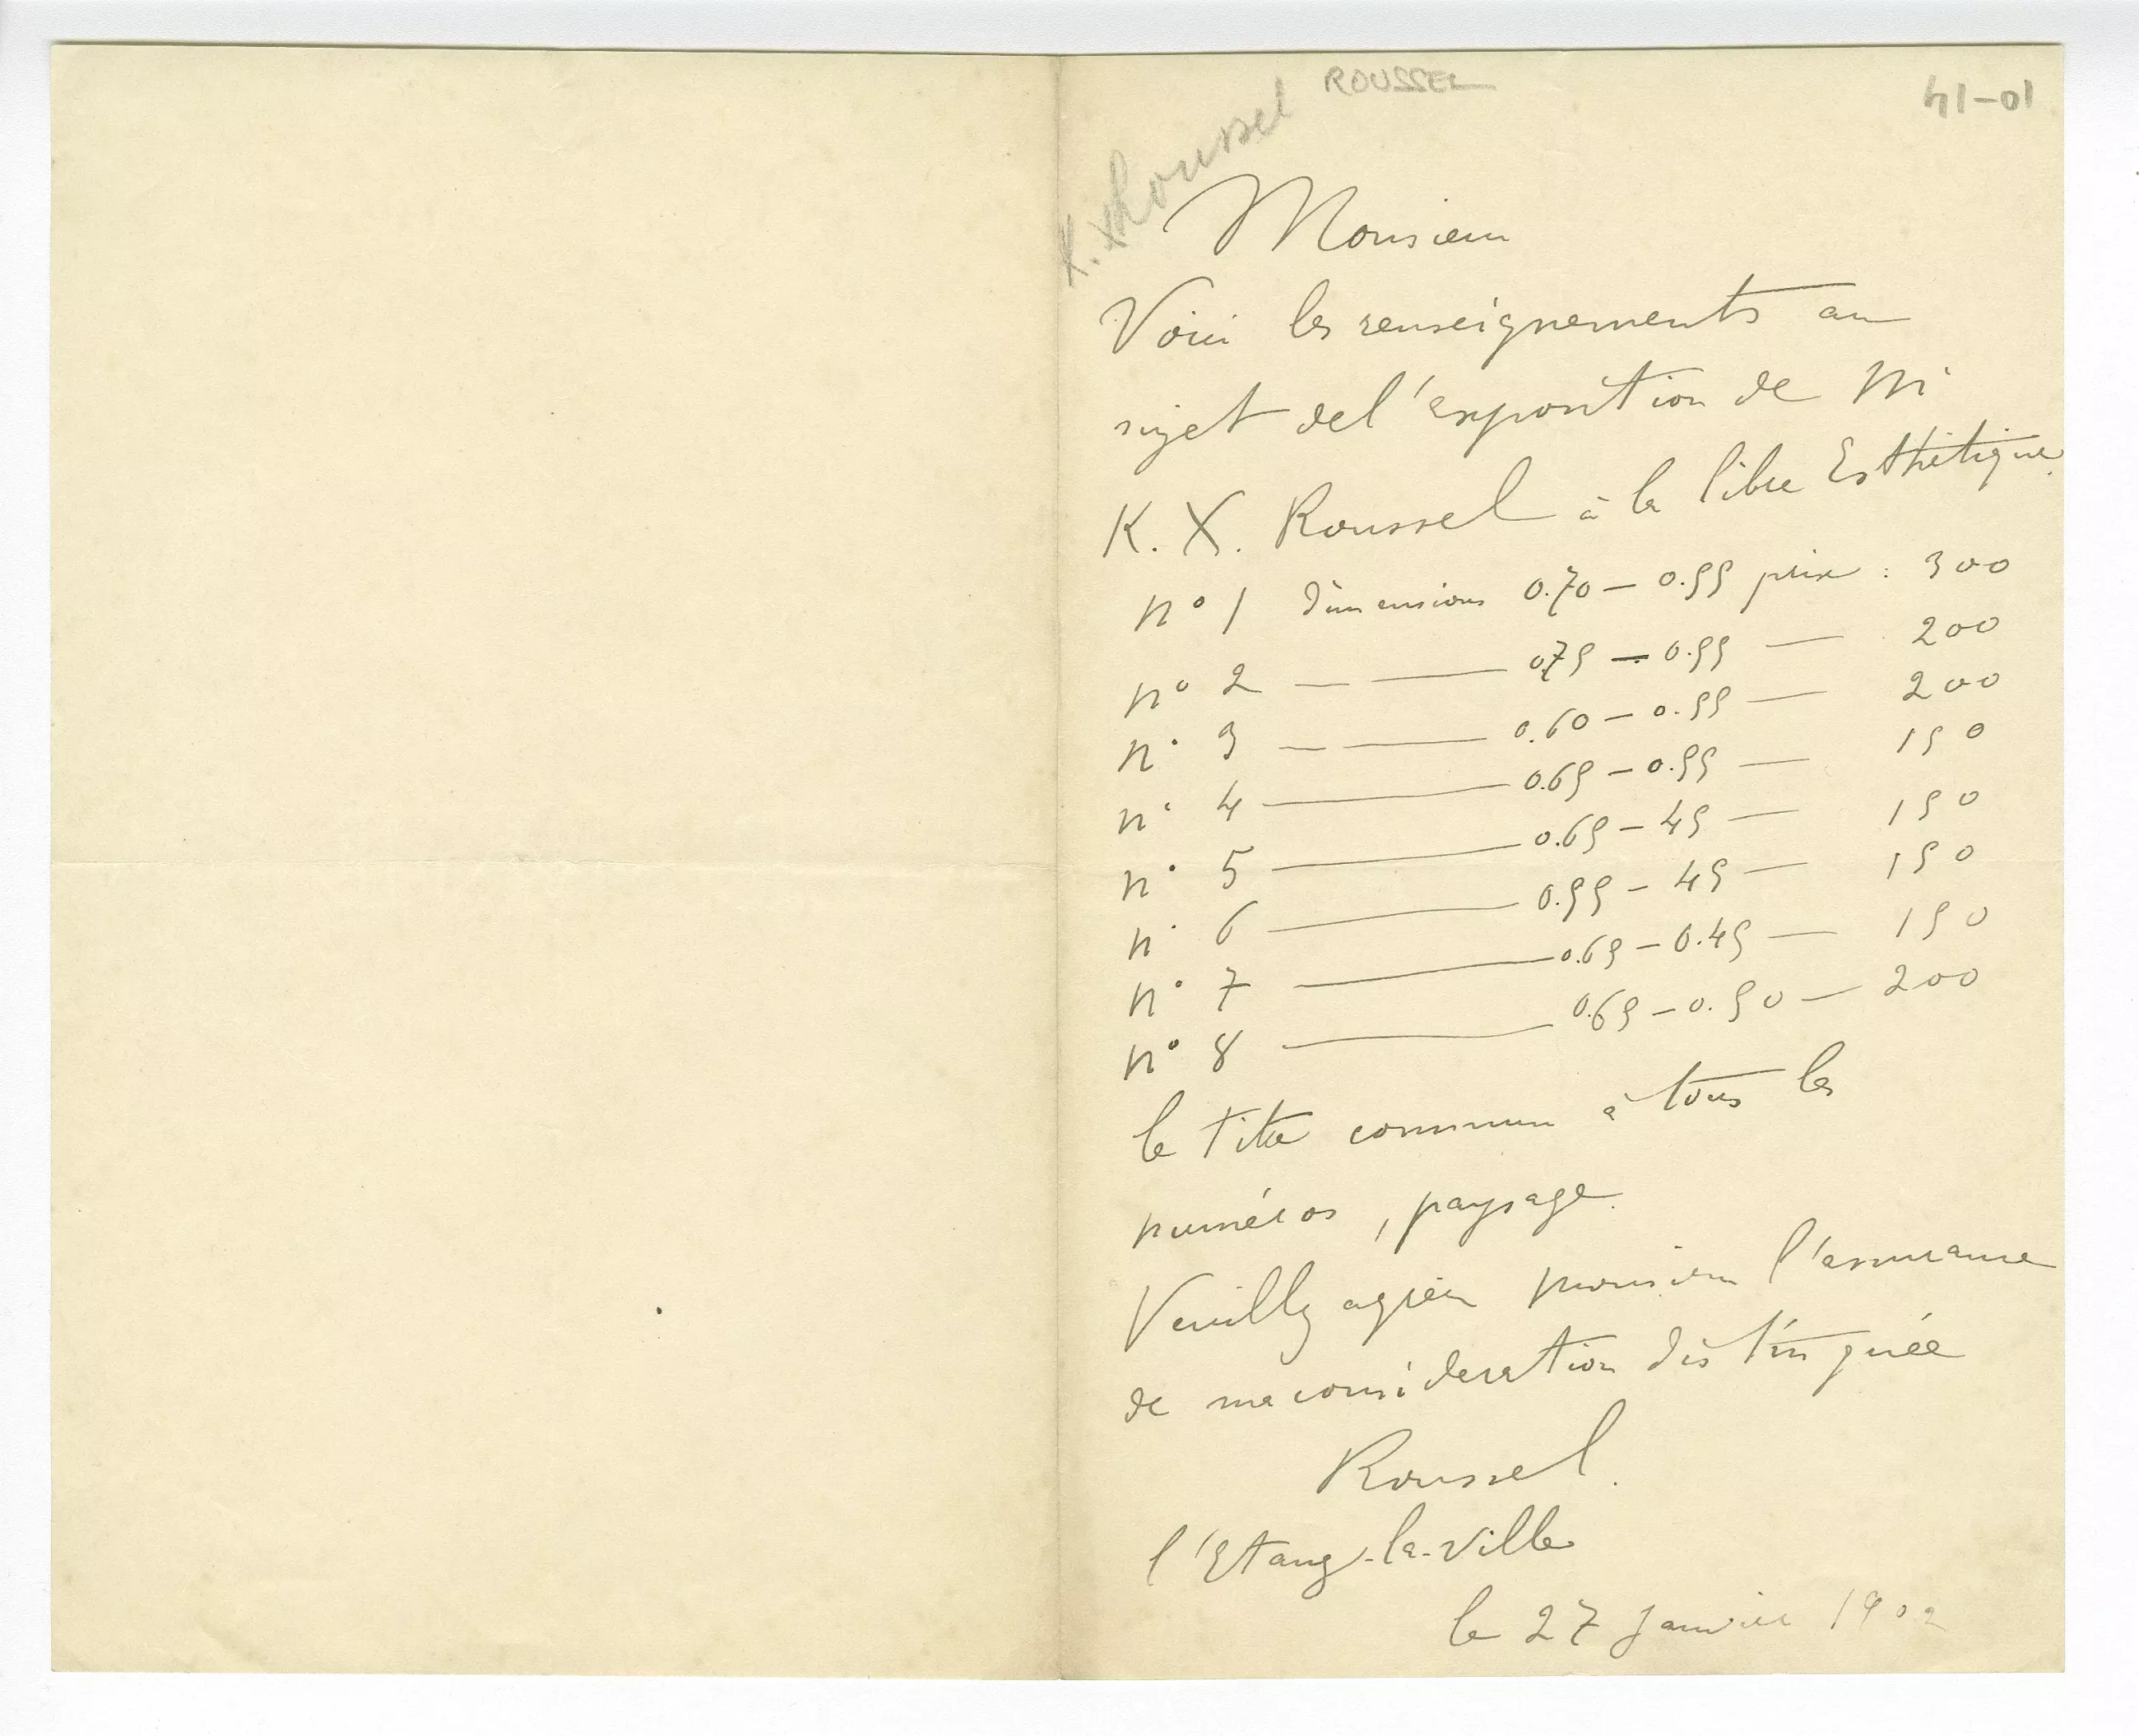 ROUSSEL
K. X Roussel
10-14
Monsieur
Voici les renseignements au
sujet de l'exposition de Mr
K. X. Roussel à la libre Esthétique.
n° 1 dimensions 0.70 — 0.55 prix : 300
n° 2 — — 0.75 — 0.55 — 200
n° 3 — — 0.60 — 0.55 — 200
n° 4 — 0.65 — 0.55 — 150
n° 5 — 0.65 — 45 — 150
n° 6 — 0.55 — 45 — 150
n° 7 — 0.65 — 0.45 — 150
n° 8 — 0.65 — 0.50 — 200
le titre commun à tous les
numéros, paysage.
Veuillez agréer monsieur l'assurance
de ma consideration distinguée
Roussel.
l'Etang-la-ville
le 27 Janvier 1902